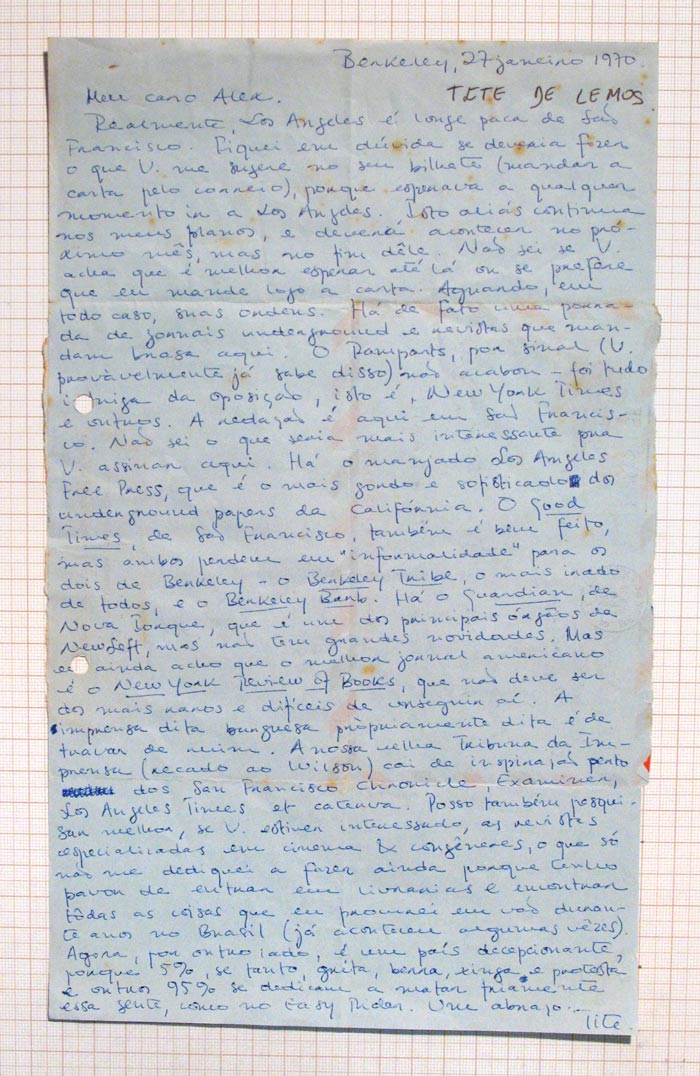 Berkeley, 27 janeiro 1970.
TITE DE LEMOS
Meu caro Alex.
Realmente, Los Angeles é longe paca de São
Francisco. Fiquei em dúvida se deveria fazer
o que V. me sugere no seu bilhete (mandar a
carta pelo correio), porque esperava a qualquer
momento ir a Los Angeles. Isto aliás continua
nos meus planos, e deverá acontecer no pró-
ximo mês, mas no fim dêle. Não sei se V.
acha que é melhor esperar até lá ou se prefere
que eu mande logo a carta. Aguardo, em
todo caso, suas ordens. Há de fato uma porra-
da de jornais underground e revistas que man-
dam brasa aqui. O Ramparts, por sinal (V.
provàvelmente já sabe disso) não acabou – foi tudo
intriga da oposição, isto é, New York Times
e outros. A redação é aqui em São Francis-
co. Não sei o que seria mais interessante pra
V. assinar aqui. Há o manjado Los Angeles
Free Press, que é o mais gordo e sofisticado dos
underground papers da Califórnia. O Good
Times, de São Francisco, também é bem feito,
mas ambos perdem em "informalidade" para os
dois de Berkeley – o Berkeley Tribe, o mais irado
de todos, e o Berkeley Barb. Há o Guardian, de
Nova Iorque, que é um dos principais órgãos da
New Left, mas não tem grandes novidades. Mas
eu ainda acho que o melhor jornal americano
é o New York Review of Books, que não deve ser
dos mais raros e difíceis de conseguir aí. A
imprensa dita burguesa pròpriamente dita é de
lavar de ruim. A nossa velha Tribuna da Im-
prensa (recado ao Wilson) cai de inspiração perto
dos San Francisco Chronicle, Examiner,
Los Angeles Times et caterva. Posso também pesqui-
sar melhor, se V. estiver interessado, as revistas
especializadas em cinema & congêneres, o que só
não me dediquei a fazer ainda porque tenho
pavor de entrar em livrarias e encontrar
tôdas as coisas que eu procurei em vão duran-
te anos no Brasil (já aconteceu algumas vêzes).
Agora, por outro lado, é um país decepcionante,
porque 5%, se tanto, grita, berra, xinga e protesta
e outros 95% se dedicam a matar friamente
essa gente, como no Easy Rider. Um abraço.–
Tite.